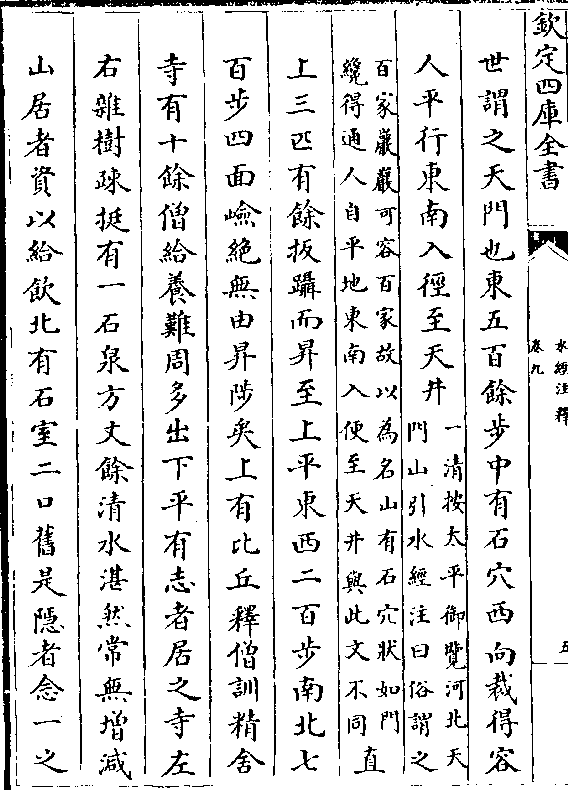 欽定四庫全書
水經注釋
卷九
五
世謂之天門也東五百餘步中有石穴西向裁得容
人平行東南入徑至天井
一清按太平御覽河北天
門山引水經注曰俗謂之
百家巖巖可容百家故以為名山有石穴狀如門
纔得通人自平地東南入便至天井與此文不同
直
上三匹有餘扳躡而昇至上平東西二百步南北七
百步四面嶮絕無由昇陟矣上有比丘釋僧訓精舍
寺有十餘僧給養難周多出下平有志者居之寺左
右雜樹疎挺有一石泉方丈餘清水湛然常無增減
山居者資以給飲北有石室二口舊是隱者念一之